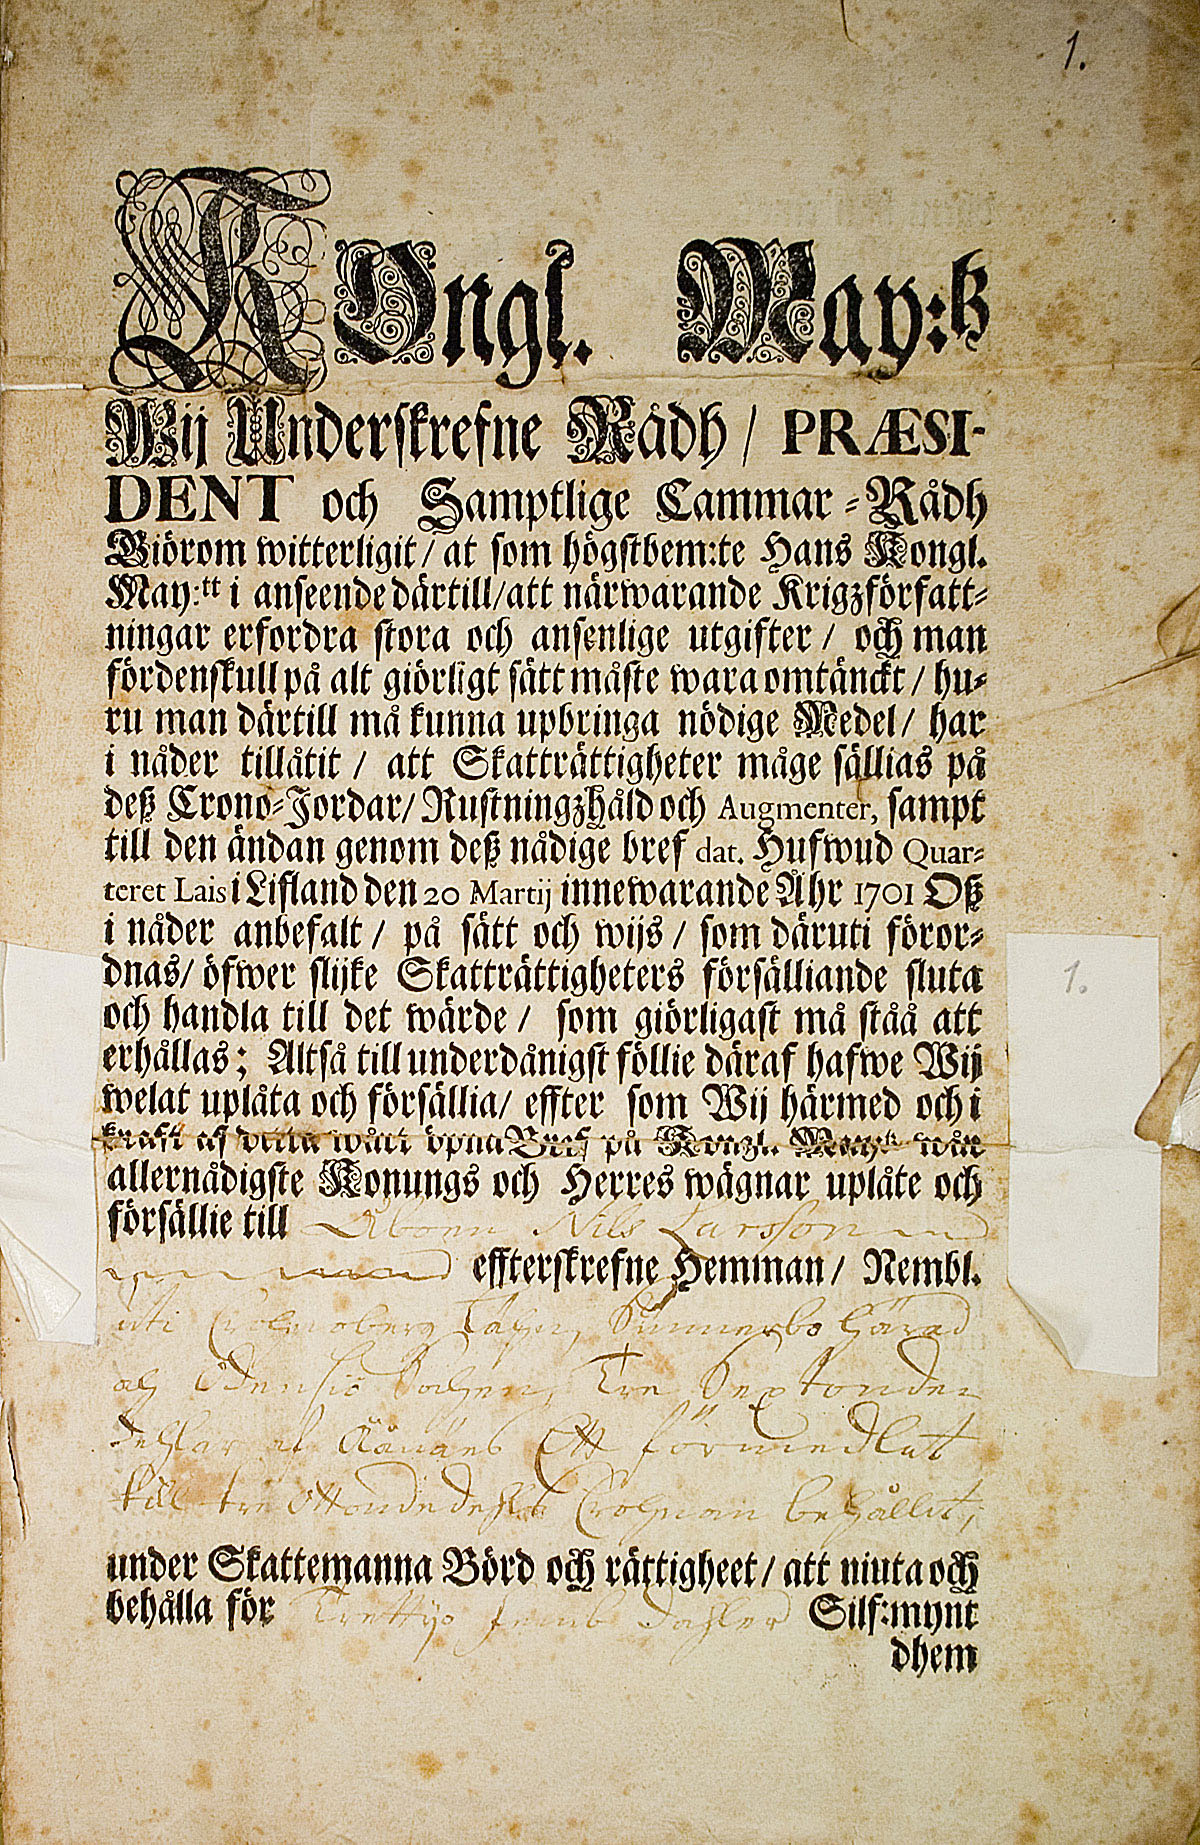 1.
KOngl. May:tz
Wij Underskrefne Rådh / PRÆSI-
DENT och Samptlige Cammar-Rådh
Giörom witterligit / at som högstbem:te Hans Kongl.
May:tt i anseende därtill / att närwarande Krigzförfatt-
ningar erfordra stora och ansenlige utgifter / och man
fördenskull på alt giörligt sätt måste wara omtänckt / hu-
ru man därtill må kunna upbringa nödige Medel / har
i nåder tillåtit / att Skatträttigheter måge sällias på
deß Crono-Jordar / Rustningzhåld och Augmenter, sampt
till den ändan genom deß nådige bref dat. Hufwud Quar-
teret Lais i Lifland den 20 Martij innewarande Åhr 1701 Oß
i nåder anbefalt / på sätt och wijs / som däruti föror-
dnas / öfwer slijke Skatträttigheters försälliande sluta
och handla till det wärde / som giörligast må ståå att
erhållas; Altså till underdånigst föllie däraf hafwe Wij
welat uplåta och försällia / effter som Wij härmed och i
kraft af detta wårt öpna Bref på Kongl. May:tz wår
allernådigste Konungs och Herres wägnar uplåte och
försällie till Åboen Nils Larsson
effterskrefne Hemman / Nembl.
uti Cronoberg Lähn, Sunnerbo Härad
och Odensiö Sochen, Tre Siextonde
dehlar af Åånäs Ett förmedlat
till tre Ottondedehls Crohnan behållit,
under Skattemanna Börd och rättigheet / att niuta och
behålla för Trettyo femb Dahler Silf:mynt
dhem
1.